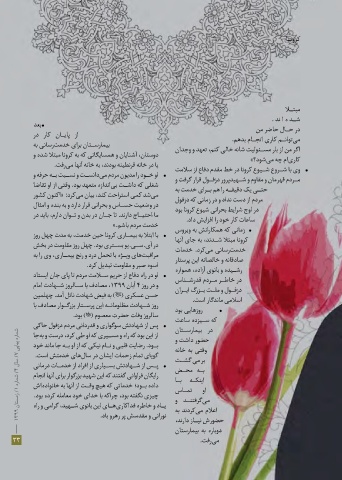 مبتلا
شده‌اند.
در حال حاضر من
می‌توانم کاری انجام بدهم.
اگر من از بار مسئولیت شانه خالی کنم، تعهد و وجدان
کاری‌ام چه می‌شود؟»
وی با شروع شیوع کرونا در خط مقدم دفاع از سلامت
مردم قهرمان و مقاوم و شهیدپرور دزفول قرار گرفت و
حتی یک دقیقه را هم برای خدمت به
مردم از دست نداد و در زمانی که دزفول
در اوج شرایط بحرانی شیوع کرونا بود
ساعات کار خود را افزایش داد.
زمانی که همکارانش به ویروس
کرونا مبتلا شدند، به جای آنها
خدمت‌رسانی می‌کرد. خدمات
صادقانه و خالصانه این پرستار
رشیده و بانوی آزاده، همواره
در خاطر مردم قدرشناس
دزفول و ملت بزرگ ایران
اسلامی ماندگار است.
روزهایی بود
که سیزده ساعت
در بیمارستان
حضور داشت و
وقتی به خانه
برمی‌گشت،
به محض
اینکه با
او تماس
می‌گرفتند و
اعلام می‌کردند به
حضورش نیاز دارند،
دوباره به بیمارستان
می‌رفت.
بعد
از پایان کار در
بیمارستان برای خدمت‌رسانی به
دوستان، آشنایان و همسایگانی که به کرونا مبتلا شده و
یا در خانه قرنطینه بودند، به خانه آنها می‌رفت.
او خود را مدیون مردم می‌دانست و نسبت به حرفه و
شغلی که داشت بی‌اندازه متعهد بود. وقتی از او تقاضا
می‌شد کمی استراحت کند، بیان می‌کرد: «اکنون کشور
در وضعیت حساس و بحرانی قرار دارد و به بنده و امثال
ما احتیاج دارند، تا جان در بدن و توان دارم، باید در
خدمت مردم باشم.»
با ابتلا به بیماری کرونا حین خدمت، به مدت چهل روز
در آی.سی.یو بستری بود. چهل روز مقاومت در بخش
مراقبت‌های ویژه با تحمل درد و رنج بیماری، وی را به
اسوه صبر و مقاومت تبدیل کرد.
او در راه دفاع از حریم سلامت مردم تا پای جان ایستاد
و در روز ۴ آبان ۱۳۹۹، مصادف با سالروز شهادت امام
حسن عسکری (ع) به فیض شهادت نائل آمد. چهلمین
روز شهادت مظلومانه این پرستار بزرگوار مصادف با
سالروز وفات حضرت معصوم (س) بود.
پس از شهادتش سوگواری و قدردانی مردم دزفول حاکی
از این بود که راه و مسیری که او طی کرد، درست و به‌جا
بود. رضایت قلبی و نام نیکی که از او به جا ماند خود
گویای تمام زحمات ایشان در سال‌های خدمتش است.
پس از شهادتش بسیاری از افراد از خدمات درمانی
رایگان فراوانی گفتند که این شهید بزرگوار برای آنها انجام
داده بود؛ خدماتی که هیچ وقت از آنها به خانواده‌اش
چیزی نگفته بود، چراکه با خدای خود معامله کرده بود.
یاد و خاطره فداکاری‌های این بانوی شهید، گرامی و راه
نورانی و مقدسش پر رهرو باد.
۲۳